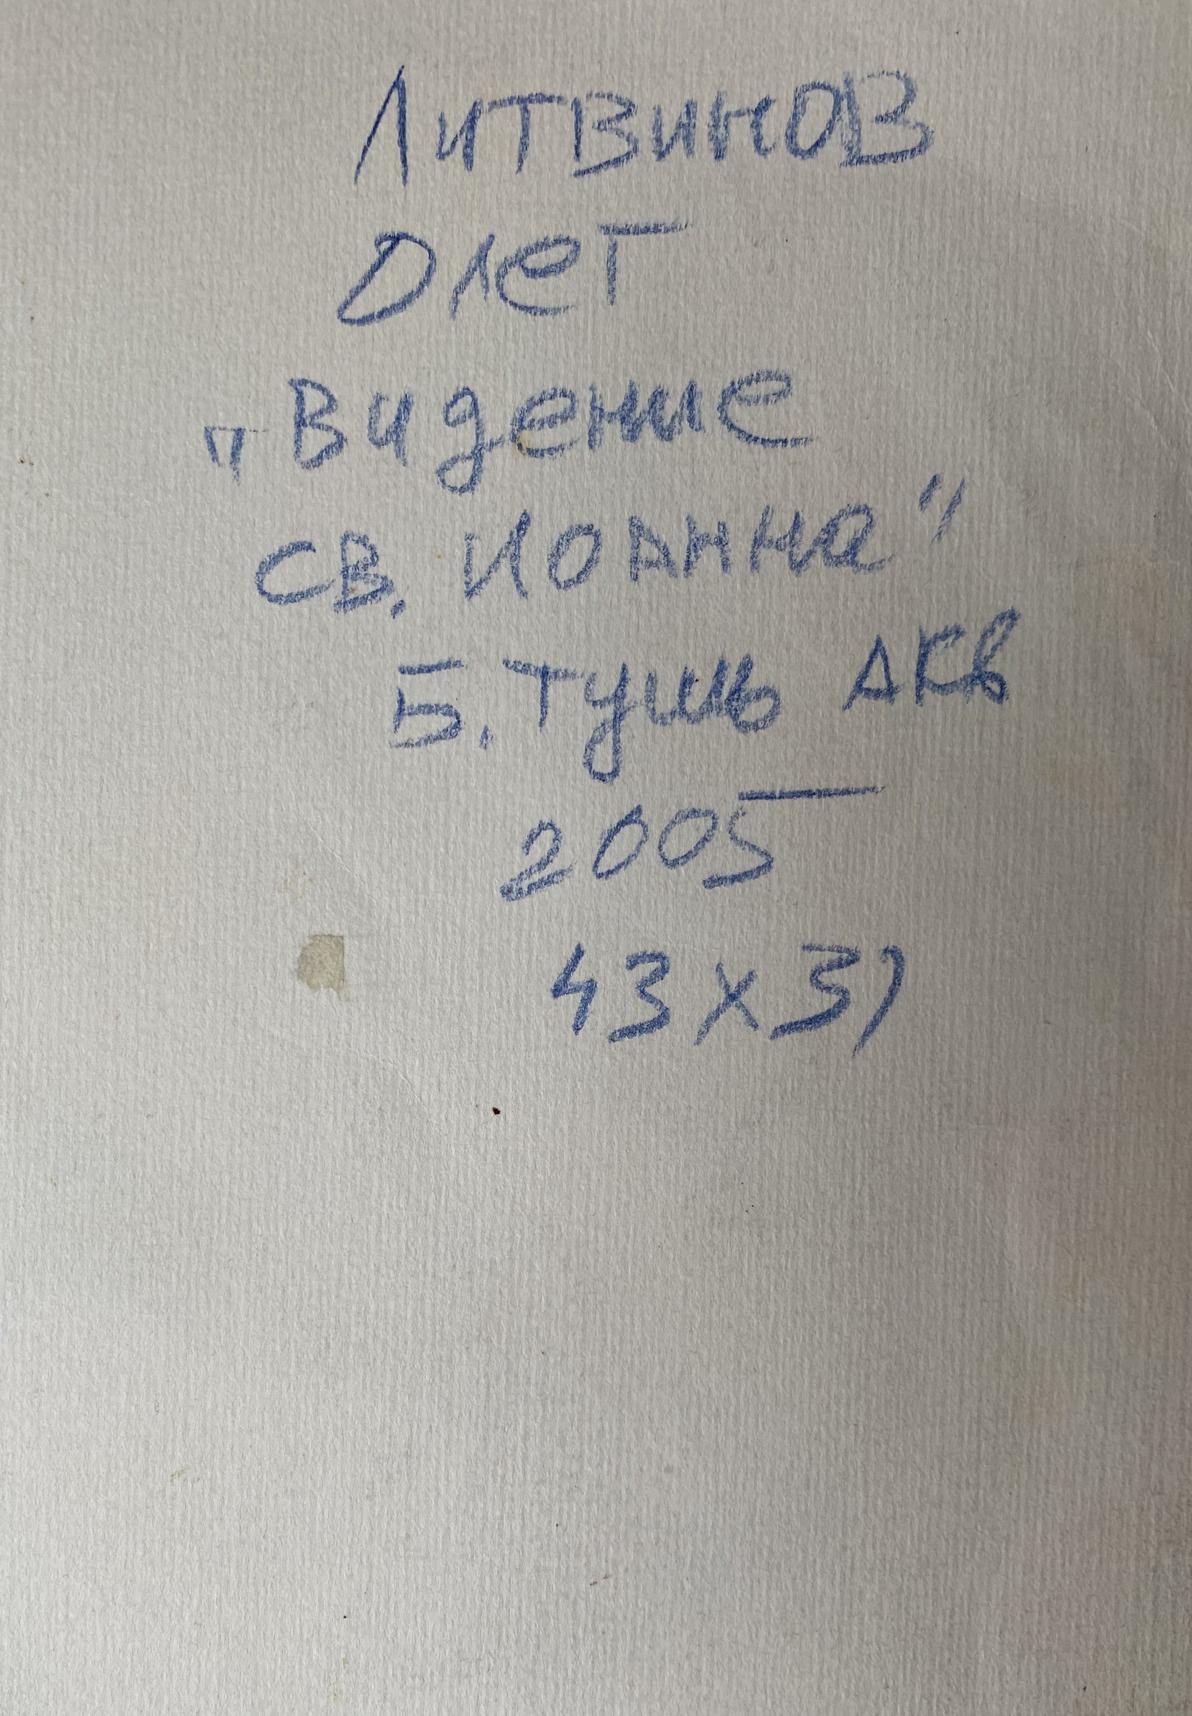 Литвинов
Олег
"Видение
св. Иоанна"
Б. тушь акв
2005
43 х 31